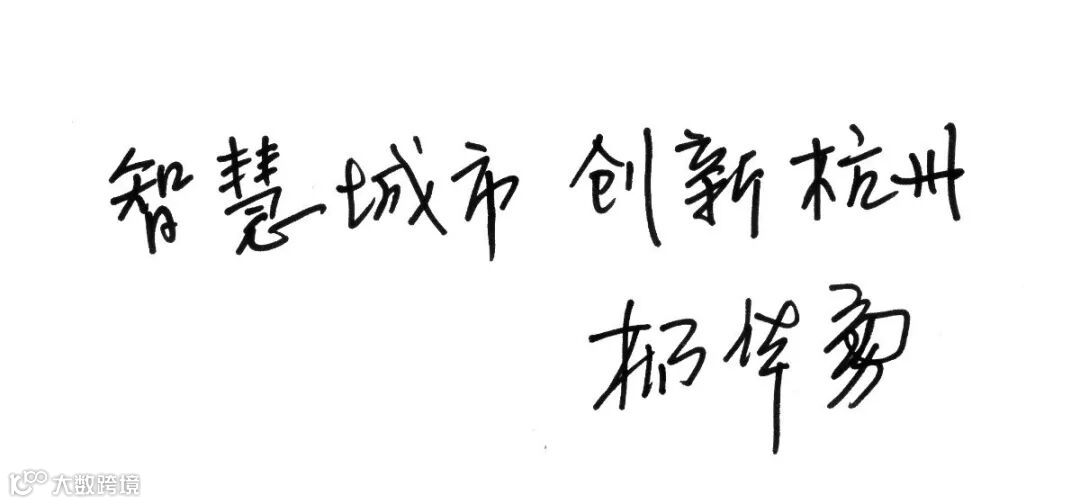 智慧城市 创新杭州
杨华勇
大数跨境